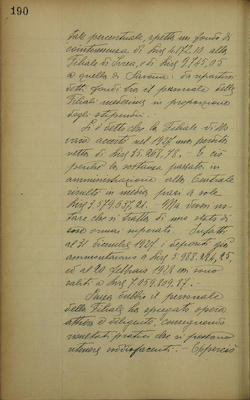 190
tale percentuale, spetta un fondo di
cointeressenza di Lire 4.172.10 alla
Filiale di Lucca, e di Lire 2.745,05
a quella di Savona: da ripartire
detti fondi fra il personale delle
Filiali medesime in proporzione
degli stipendi.
Si è detto che la Filiale di
accusò nel 1927 una perdita
netta di Lire
perchè la sostanza passata in
amministrazione alla Centrale
risultò in media pari a sole
Lire 3.579.637,21. - Ma devesi no-
tare che si tratta di uno stato di
cose ormai superato. Infatti
al 31 dicembre 1927 i depositi già
ammontavano a Lire 5.988.246,25,
ed al 20 febbraio 1928 en sono
saliti a Lire 7.059.809,87. -
Senza dubbio il personale
della Filiale ha spiegato opera
attiva e diligente, conseguendo
resultati pratici che si possono
ritenere sodisfacenti. -